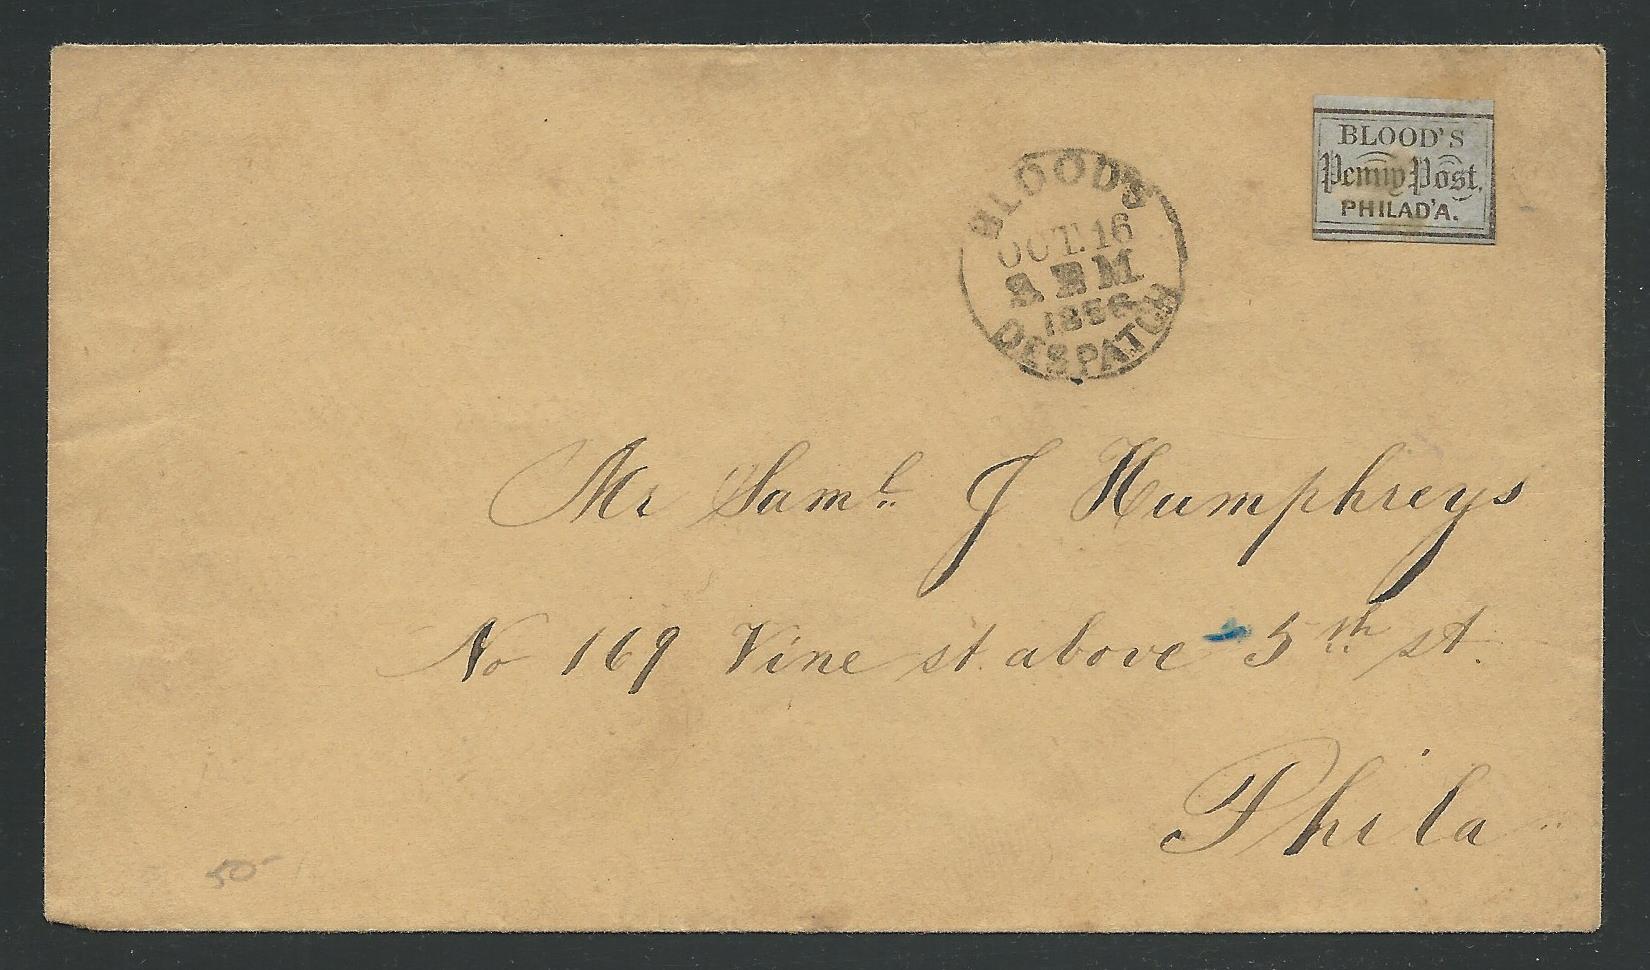 BLOOD'S
Penny Post,
PHILAD'A.
BLOOD'S
OCT. 16
1856
DESPATCH
Mr Saml. J Humphreys
No 169 Vine st. above 5th st.
Phila
50